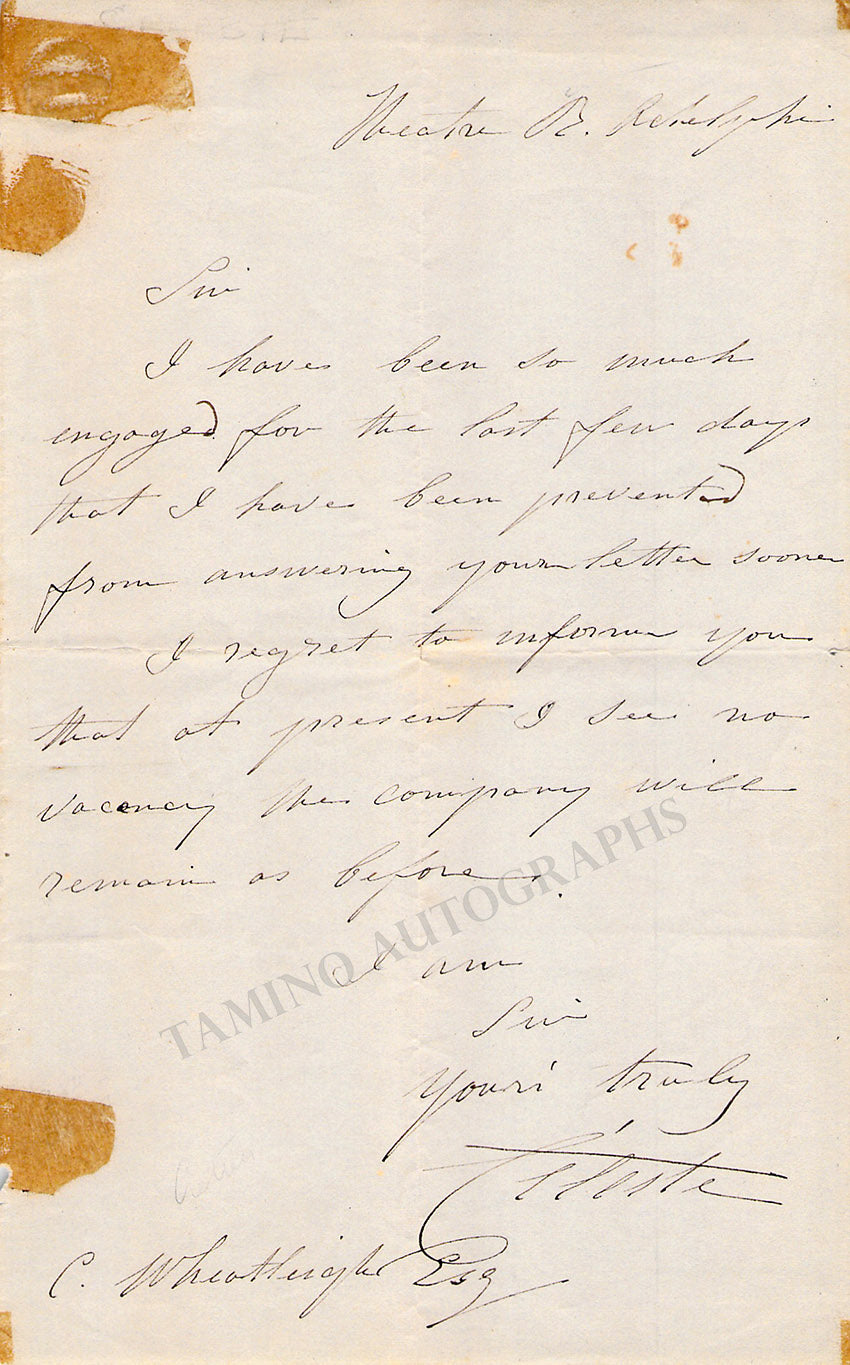 Theatre R. Adelphi
Sir
I have been so much
engaged for the last few days
that I have been prevented
from answering your letter sooner
I regret to inform you
that at present I see no
vacancy the company will
remain as before.
I am
Sir
Yours truly
Céleste
C. Wheatleigh Esq
TAMINO AUTOGRAPHS